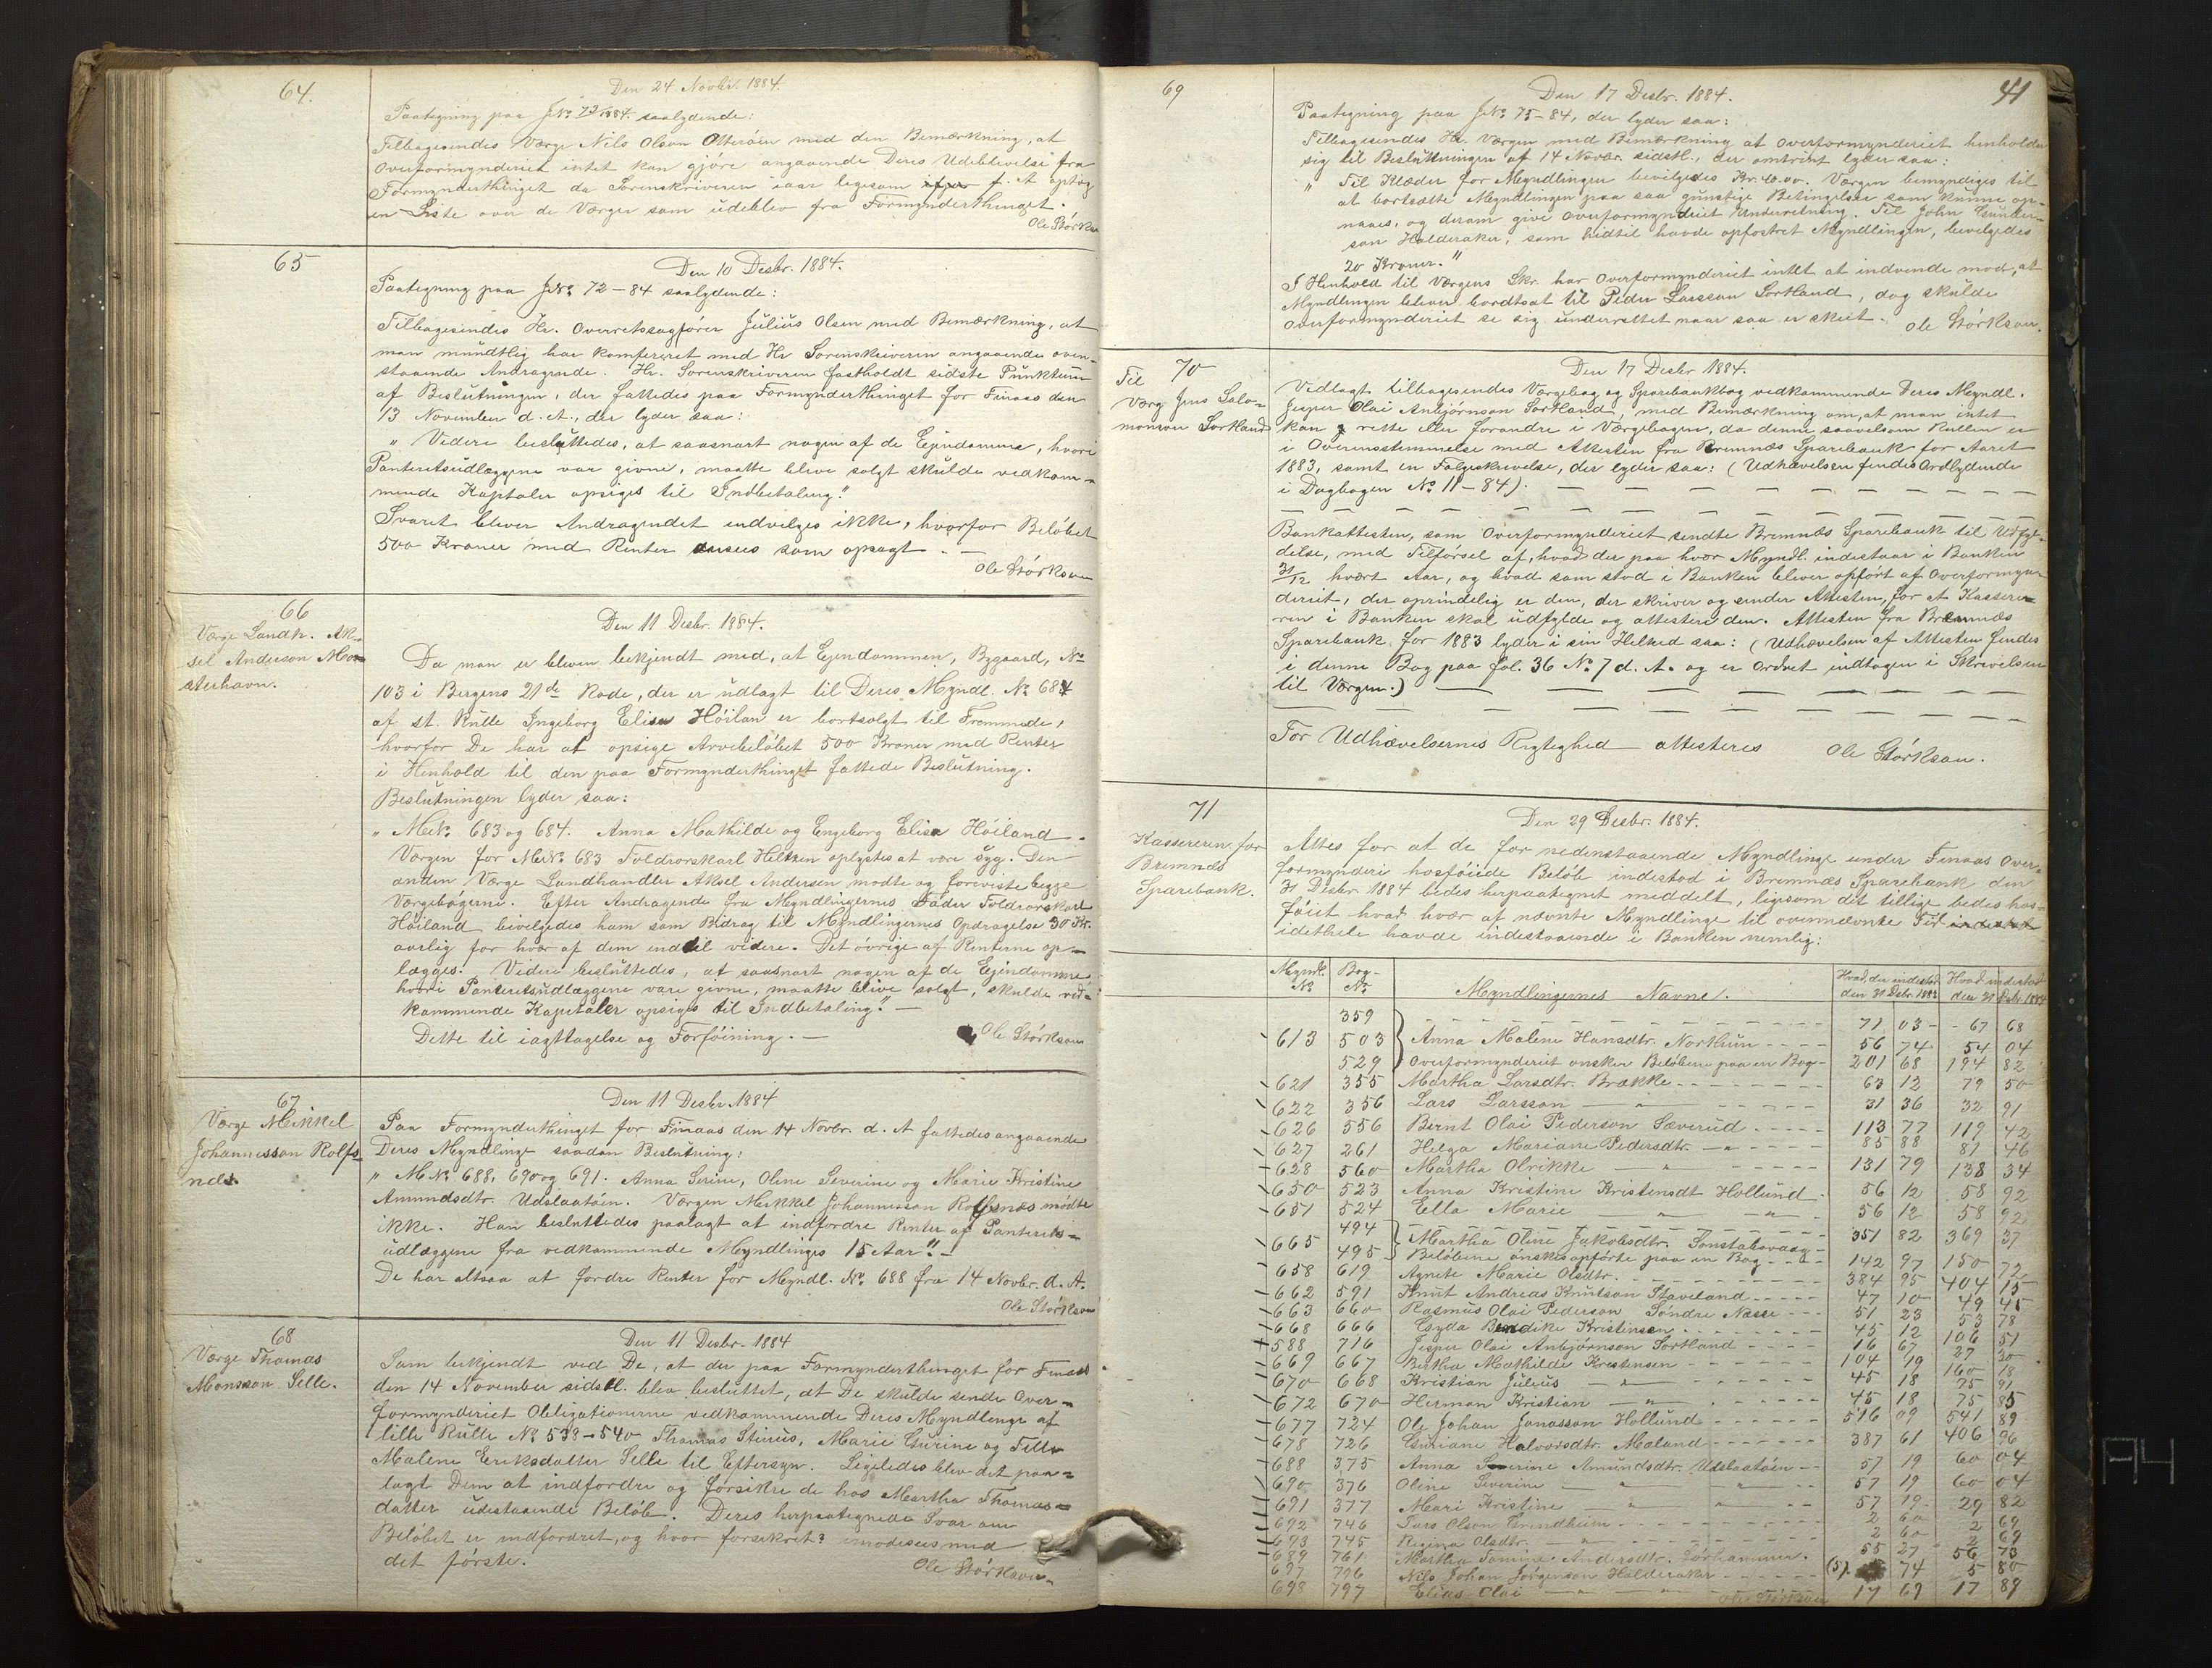 64.
Den 24 Novbr. 1884.
Paategning paa JNo. 72/1884 saalydende:
Tilbagesendes Værge Nils Olson Otteröen med den Bemærkning, at
Overformynderiet intet kan gjöre angaaende Deres Udeblivelse fra
Formynderthinget da Sorenskriveren iaar ligesom f. A optog
en Liste over de Værger som udeblev fra Formynderthinget.
Ole Störkson
65
Den 10 Desbr. 1884.
Paategning paa JNo. 72-84 saalydende:
Tilbagesendes Hr. Overretssagförer Julius Olsen med Bemærkning, at
man mundtlig har konfereret med Hr Sorenskriveren angaaende oven-
staaende Andragende. Hr. Sorenskriveren fastholdt sidste Punktum
af Beslutningen, der fattedes paa Formynderthinget for Finaas den
13 November d. A., der lyder saa:
"Videre besluttedes, at saasnart nogen af de Ejendomme, hvori
Panteretsudlæggene var givne, maatte blive solgt skulde vedkom-
mende Kapitaler opsiges til Indbetaling."
Svaret bliver Andragendet indvilges ikke, hvorfor Belöbet
500 Kroner med Renter ansees som opsagt. -
Ole Störkson
66
Værge Landh. Ak-
sel Anderson Mo-
sterhavn.
Den 11 Desbr. 1884.
Da man er bleven bekjendt med, at Ejendommen, Bygaard, No
103 i Bergens 21de Rode, der er udlagt til Deres Myndl. No 684
af st. Rulle Ingeborg Elisa Höilan er bortsolgt til Fremmede,
hvorfor De har at opsige Arvebelöbet 500 Kroner med Renter
i Henhold til den paa Formynderthinget fattede Beslutning.
Beslutningen lyder saa:
"MNo. 683 og 684. Anna Mathilde og Engeborg Elisa Höiland.
Værgen for MNo. 683 Toldrorskarl Hilken oplystes at være syg. Den
anden Værge Landhandler Aksel Andersen mödte og foreviste begge
Værgebögerne. Efter Andragende fra Myndlingernes Fader Toldrorskarl
Höiland bevilgedes ham som Bidrag til Myndlingernes Opdragelse 30 Kr.
aarlig for hver af dem indtil videre. Det övrige af Renterne op-
lægges. Videre besluttedes, at saasnart nogen af de Ejendomme
hvori Panteretsudlæggene vare givne, maatte blive solgt, skulde ved-
kommende Kapitaler opsiges til Indbetaling." -
Dette til iagttagelse og Forföining. -
Ole Störkson
67
Værge Mikkel
Johannesson Rolfs-
næs
Den 11 Desbr. 1884
Paa Formynderthinget for Finaas den 14 Novbr. d. A fattedes angaaende
Deres Myndlinge saadan Beslutning:
"M No. 688, 690 og 691. Anna Serine, Oline Severine og Marie Kristine
Amundsdtr. Udslaatöen. Værgen Mikkel Johannesson Rolfsnæs mödte
ikke. Han besluttedes paalagt at indfordre Renter af Panterets-
udlæggene fra vedkommende Myndlinges 15 Aar." -
De har altsaa at fordre Renter for Myndl. No. 688 fra 14 Novbr. d. A.
Ole Störkson
68
Værge Thomas
Monsson Selle.
Den 11 Desbr. 1884
Som bekjendt ved De, at der paa Formynderthinget for Finaas
den 14 November sidstl. blev besluttet, at De skulde sende Over-
formynderiet Obligationerne vedkommende Deres Myndlinge af
lille Rulle No. 538-540 Thomas Stinus, Marie Gurine og
Malene Eriksdatter Selle til Eftersyn. Ligeledes blev det paa-
lagt Dem at indfordre og forsikre de hos Martha Thomas-
datter udestaaende Belöb. Deres herpaategnede Svar om
Belöbet er indfordret, og hvor forsikret? imödesees med
det förste.
Ole Störkson
41
69
Den 17 Desbr. 1884.
Paategning paa JNo. 75-84, der lyder saa:
Tilbagesendes Hr. Værgen med Bemærkning at Overformynderiet henholder
sig til Beslutningen af 14 Novbr. sidstl., der omtrent lyder saa:
"Til Klæder for Myndlingen bevilgedes Kr. 40.00. Værgen bemyndiges til
at bortsætte Myndlingen paa saa gunstige Betingelser som kunne op-
naaes, og derom give Overformynderiet Underretning. Til John Gunder-
son Holderaker, som hidtil havde opfostret Myndlingen, bevilgedes
20 Kroner."
I Henhold til Værgens Skr. har Overformynderiet intet at indvende mod, at
Myndlingen bliver bortsat til Peder Lassesen Sortland, dog skulde
Overformynderiet se sig underrettet naar saa er skeet.
Ole Störkson.
70
Til
Værg Jens Salo-
monson Sortland
Den 17 Desbr 1884.
Vedlagt tilbagesendes Værgebog og Sparebankbog vedkommende Deres Myndl.
Jesper Olai Anbjörnson Sortland, med Bemærkning om, at man intet
kan rette eller forandre i Værgebogen, da denne saavelsom Rullen er
i Overensstemmelse med Attesten fra Bremnæs Sparebank for Aaret
1883, samt en Fölgeskrivelse, der lyder saa: (Udhævelsen findes Ordlydende
i Dagbogen No. 11-84).
Bankattesten, som Overformynderiet sendte Bremnæs Sparebank til Udfyl-
delse, med Tilförsel af, hvad der paa hver Myndl. indestaar i Banken
31/12 hvert Aar, og hvad som stod i Banken bliver opfört af Overformyn-
deriet, der oprindelig er den, der skriver og sender Attesten, for at Kassere-
ren i Banken skal udfylde og attestere den. Attesten fra Bremnæs
Sparebank for 1883 lyder i sin Helhed saa: (Udhævelsen af Attesten findes
i denne Bog paa fol. 36 No. 7 d. A. og er Ordret indtagen i Skrivelsen
til Værgen.)
For Udhævelsernes Rigtighed attesteres Ole Störkson.
71
Kassereren for
Bremnæs
Sparebank.
Den 29 Desbr. 1884.
Attes for at de for nedenstaaende Myndlinge under Finaas Over-
formynderi hosföiede Belöb indestod i Bremnæs Sparebank den
31 Desbr 1884 bedes herpaategnet meddelt, ligesom det tillige bedes hos-
föiet hvad hver af nævnte Myndlinge til ovennævnte Tid
idethele havde indestaaende i Banken nemlig:
Myndl. No Bog-No. Myndlingernes Navne. Hvad der indestod den 31 Debr. 1883 Hvad indestod den 31 Debr. 1884
359 71 03 67 68
613 503 Anna Malene Hansdtr. Northun 56 74 54 04
529 Overformynderiet önsker Belöbene paa en Bog 201 68 194 82
621 355 Martha Larsdtr. Brække 63 12 79 50
622 356 Lars Larsson " 31 36 32 91
626 556 Bernt Olai Pederson Sæverud 113 77 119 42
627 261 Helga Mariane Pedersdtr. " 85 88 81 46
628 560 Martha Olrikke " 131 79 138 34
650 523 Anna Kristine Kristensdt Hollund 56 12 58 92
651 524 Ella Marie " " 56 12 58 92
494
665 Martha Oline Jakobsdtr. 351 82 369 37
495 Belöbene önskes opförte paa en Bog
658 619 Agnete Marie Olsdtr. 142 97 150 72
662 591 Knut Andreas Knutson Staveland 384 95 404 15
663 660 Rasmus Olai Pederson Söndre Næsse 47 10 49 45
668 666 Gyda Bendike Kristinsen 51 23 53 78
588 716 Jesper Olai Anbjörnson Sortland 45 12 106 51
669 667 Betha Mathilde Kristensen 16 67 27 30
670 668 Kristian Julius " 104 19 160 18
672 670 Herman Kristian " 45 18 75 91
677 724 Ole Johan Jonasson Hollund 45 18 75 85
678 726 Guriane Halvorsdtr. Mæland 516 09 541 89
387 61 406 96
688 375 Anna Severine Amundsdtr. Udslaatöen 57 19 60 04
690 376 Oline Severine " " 57 19 60 04
691 377 Mari Kristine " " 57 19 29 82
692 746 Lars Olson Grindheim 2 60 2 69
693 745 Regina Olsdtr. " 2 60 2 69
689 761 Martha Tomine Andersdtr. 55 27 56 73
697 796 Nils Johan Jörgenson Holderaker (5) 74 5 80
698 797 Elias Olai " " 17 69 17 89
Ole Störkson